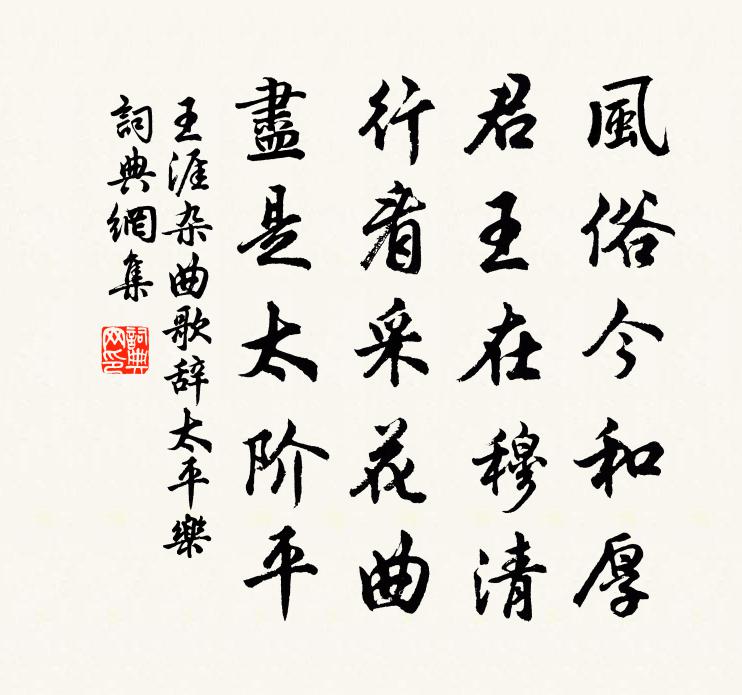 風俗今和厚
君王在穆清
行看采花曲
盡是太阶平
王涯杂曲歌辞太平樂
詞典網集
詞典網印